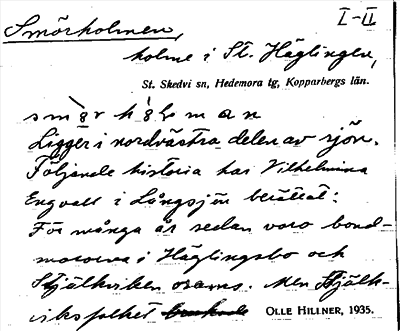 Smörholmen, I-II
holme i St. Häglingen,
St. Skedvi sn, Hedemora tg, Kopparbergs län.
Ligger i nordvästra delen av sjön.
Följande historia har Vilhelmina
Engvall i Långsjön berättat:
För många år sedan voro bond-
mororna i Häglingsbo och
Stjälkviken osams. Men Stjälk-
viksfolket OLLE HILLNER, 1935.